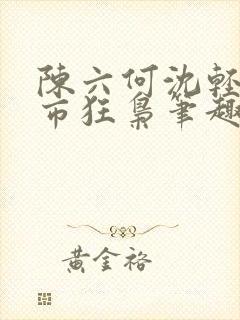 陳六何沈輕
市狂梟筆趣
黃金裕